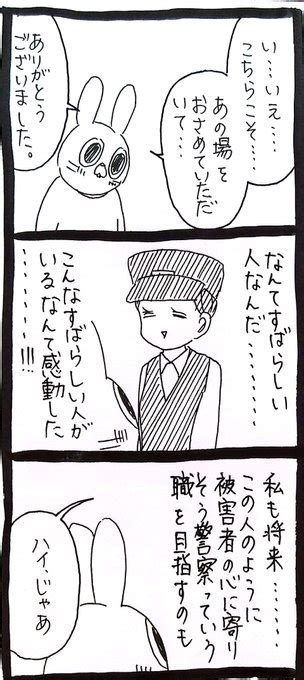 い…いえ……
こちらこそ……
あの場を
おさめていただ
いて……
ありがとう
ございました。
なんてすばらしい
人なんだ………
こんなすばらしい人が
いるなんて感動した
………!!!
私も将来………
この人のように
被害者の心に寄り
そう警察っていう
職を目指すのも
ハイ、じゃあ